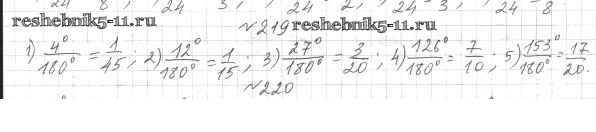 24 8 ; 24 3 ; 24 2 ; 24 3 ; 24 8
reshebnik5-11.ru
№219 reshebnik5-11.ru
1) 4°/180° = 1/45; 2) 12°/180° = 1/15; 3) 27°/180° = 3/20; 4) 126°/180° = 7/10; 5) 153°/180° = 17/20.
№220